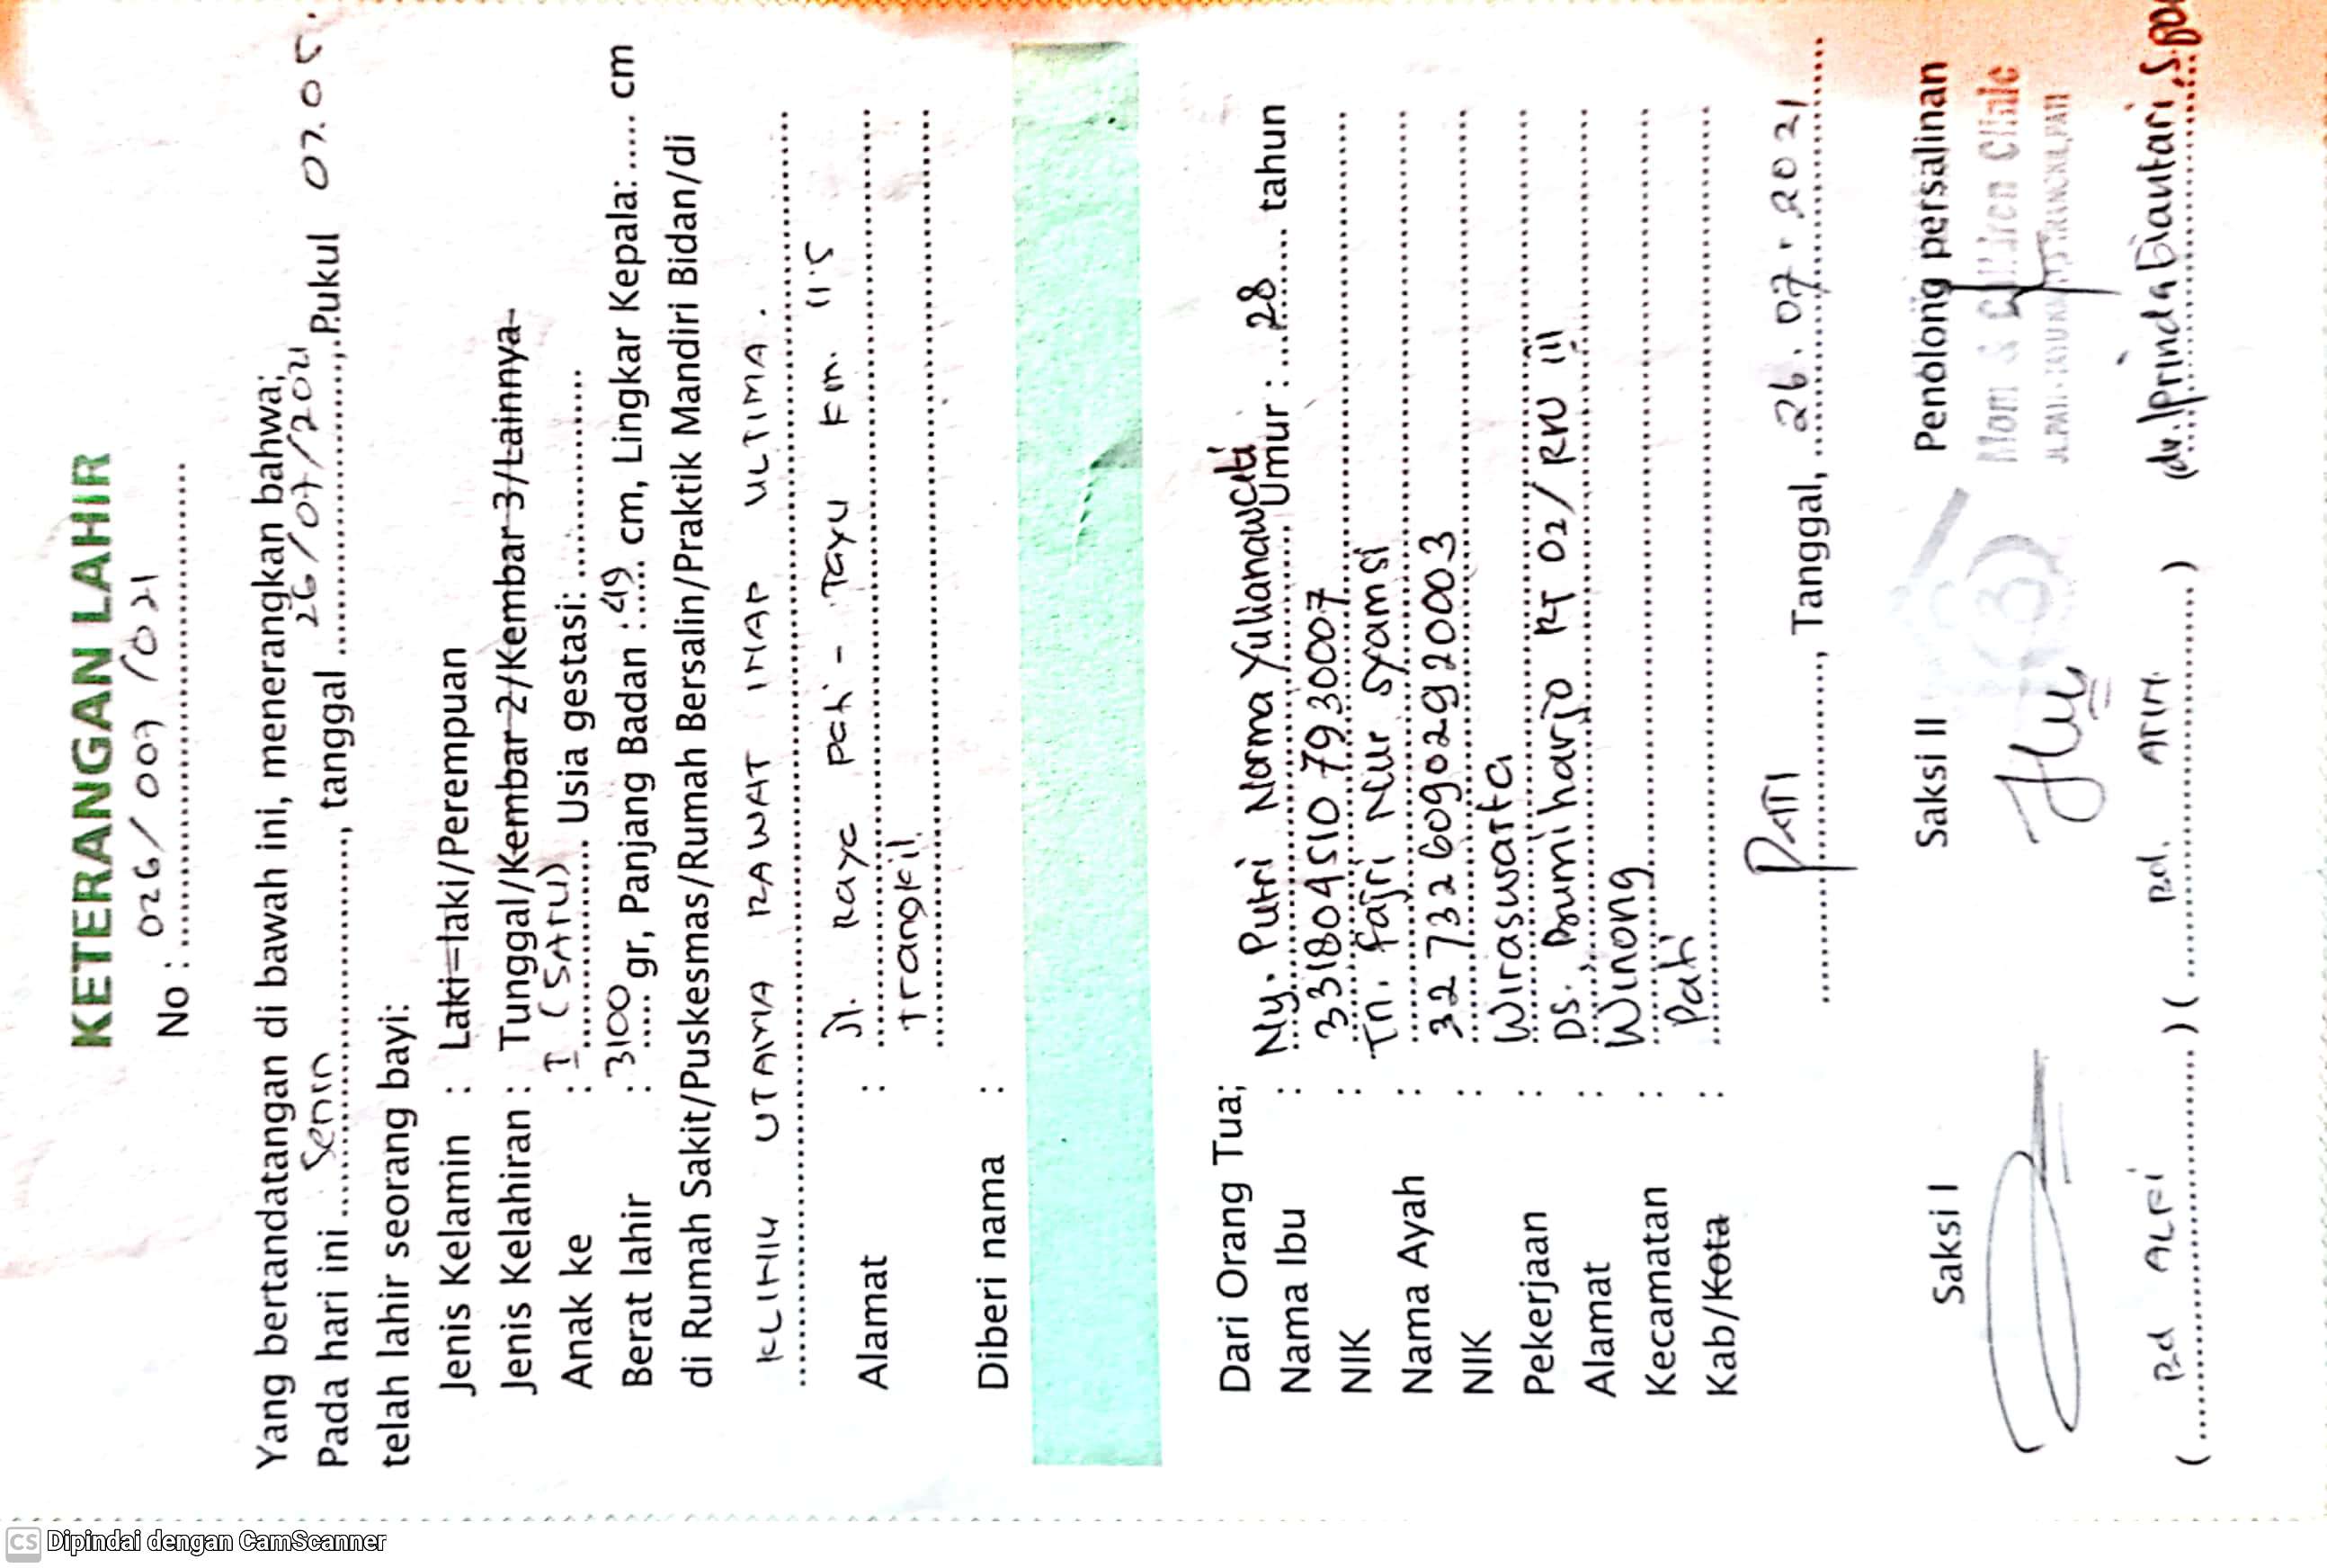 KETERANGAN LAHIR
No : 026/007/021
Yang bertandatangan di bawah ini, menerangkan bahwa;
Pada hari ini Senin, tanggal 26/07/2021, Pukul 07.05.
telah lahir seorang bayi:
Jenis Kelamin : Laki-laki/Perempuan
Jenis Kelahiran : Tunggal/Kembar 2/Kembar 3/Lainnya
Anak ke : I (SATU) Usia gestasi:
Berat lahir : 3100 gr, Panjang Badan : 49 cm, Lingkar Kepala: ..... cm
di Rumah Sakit/Puskesmas/Rumah Bersalin/Praktik Mandiri Bidan/di
KLINIK UTAMA RAWAT INAP ULTIMA.
Alamat : Jl. Raya Pati - Tayu Km. 11.5
Trangkil
Diberi nama :
Dari Orang Tua;
Nama Ibu : Ny. Putri Norma Yulianawati Umur : 28 tahun
NIK : 3318045107930007
Nama Ayah : Tn. Fajri Nur Syamsi
NIK : 3273260902920003
Pekerjaan : Wiraswasta
Alamat : Ds. Bumiharjo RT 02/ RW III
Kecamatan : Winong
Kab/Kota : Pati
PATI, Tanggal, 26.07.2021
Saksi I Saksi II Penolong persalinan
Mom & Children Clinic
(Bd ALFI) (Bd. ATIH)
CS Dipindai dengan CamScanner